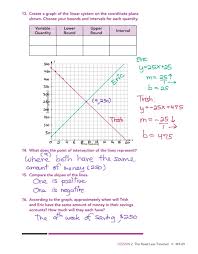 13. Create a graph of the linear system on the coordinate plane shown. Choose your bounds and intervals for each quantity.
Variable Quantity
Lower Bound
Upper Bound
Interval
Eric
y=25x+25
m = 25↑
1→
b = 25
Eric
(9,250)
Trish
y=-25x+475
Trish
m = -25↓
1→
b = 475
14. What does the point of intersection of the lines represent?
Where both have the same
amount of money (250)
15. Compare the slopes of the lines.
One is positive
One is negative
16. According to the graph, approximately when will Trish
and Eric have the same amount of money in their savings
accounts? How much will they each have?
The 9th week of saving $250